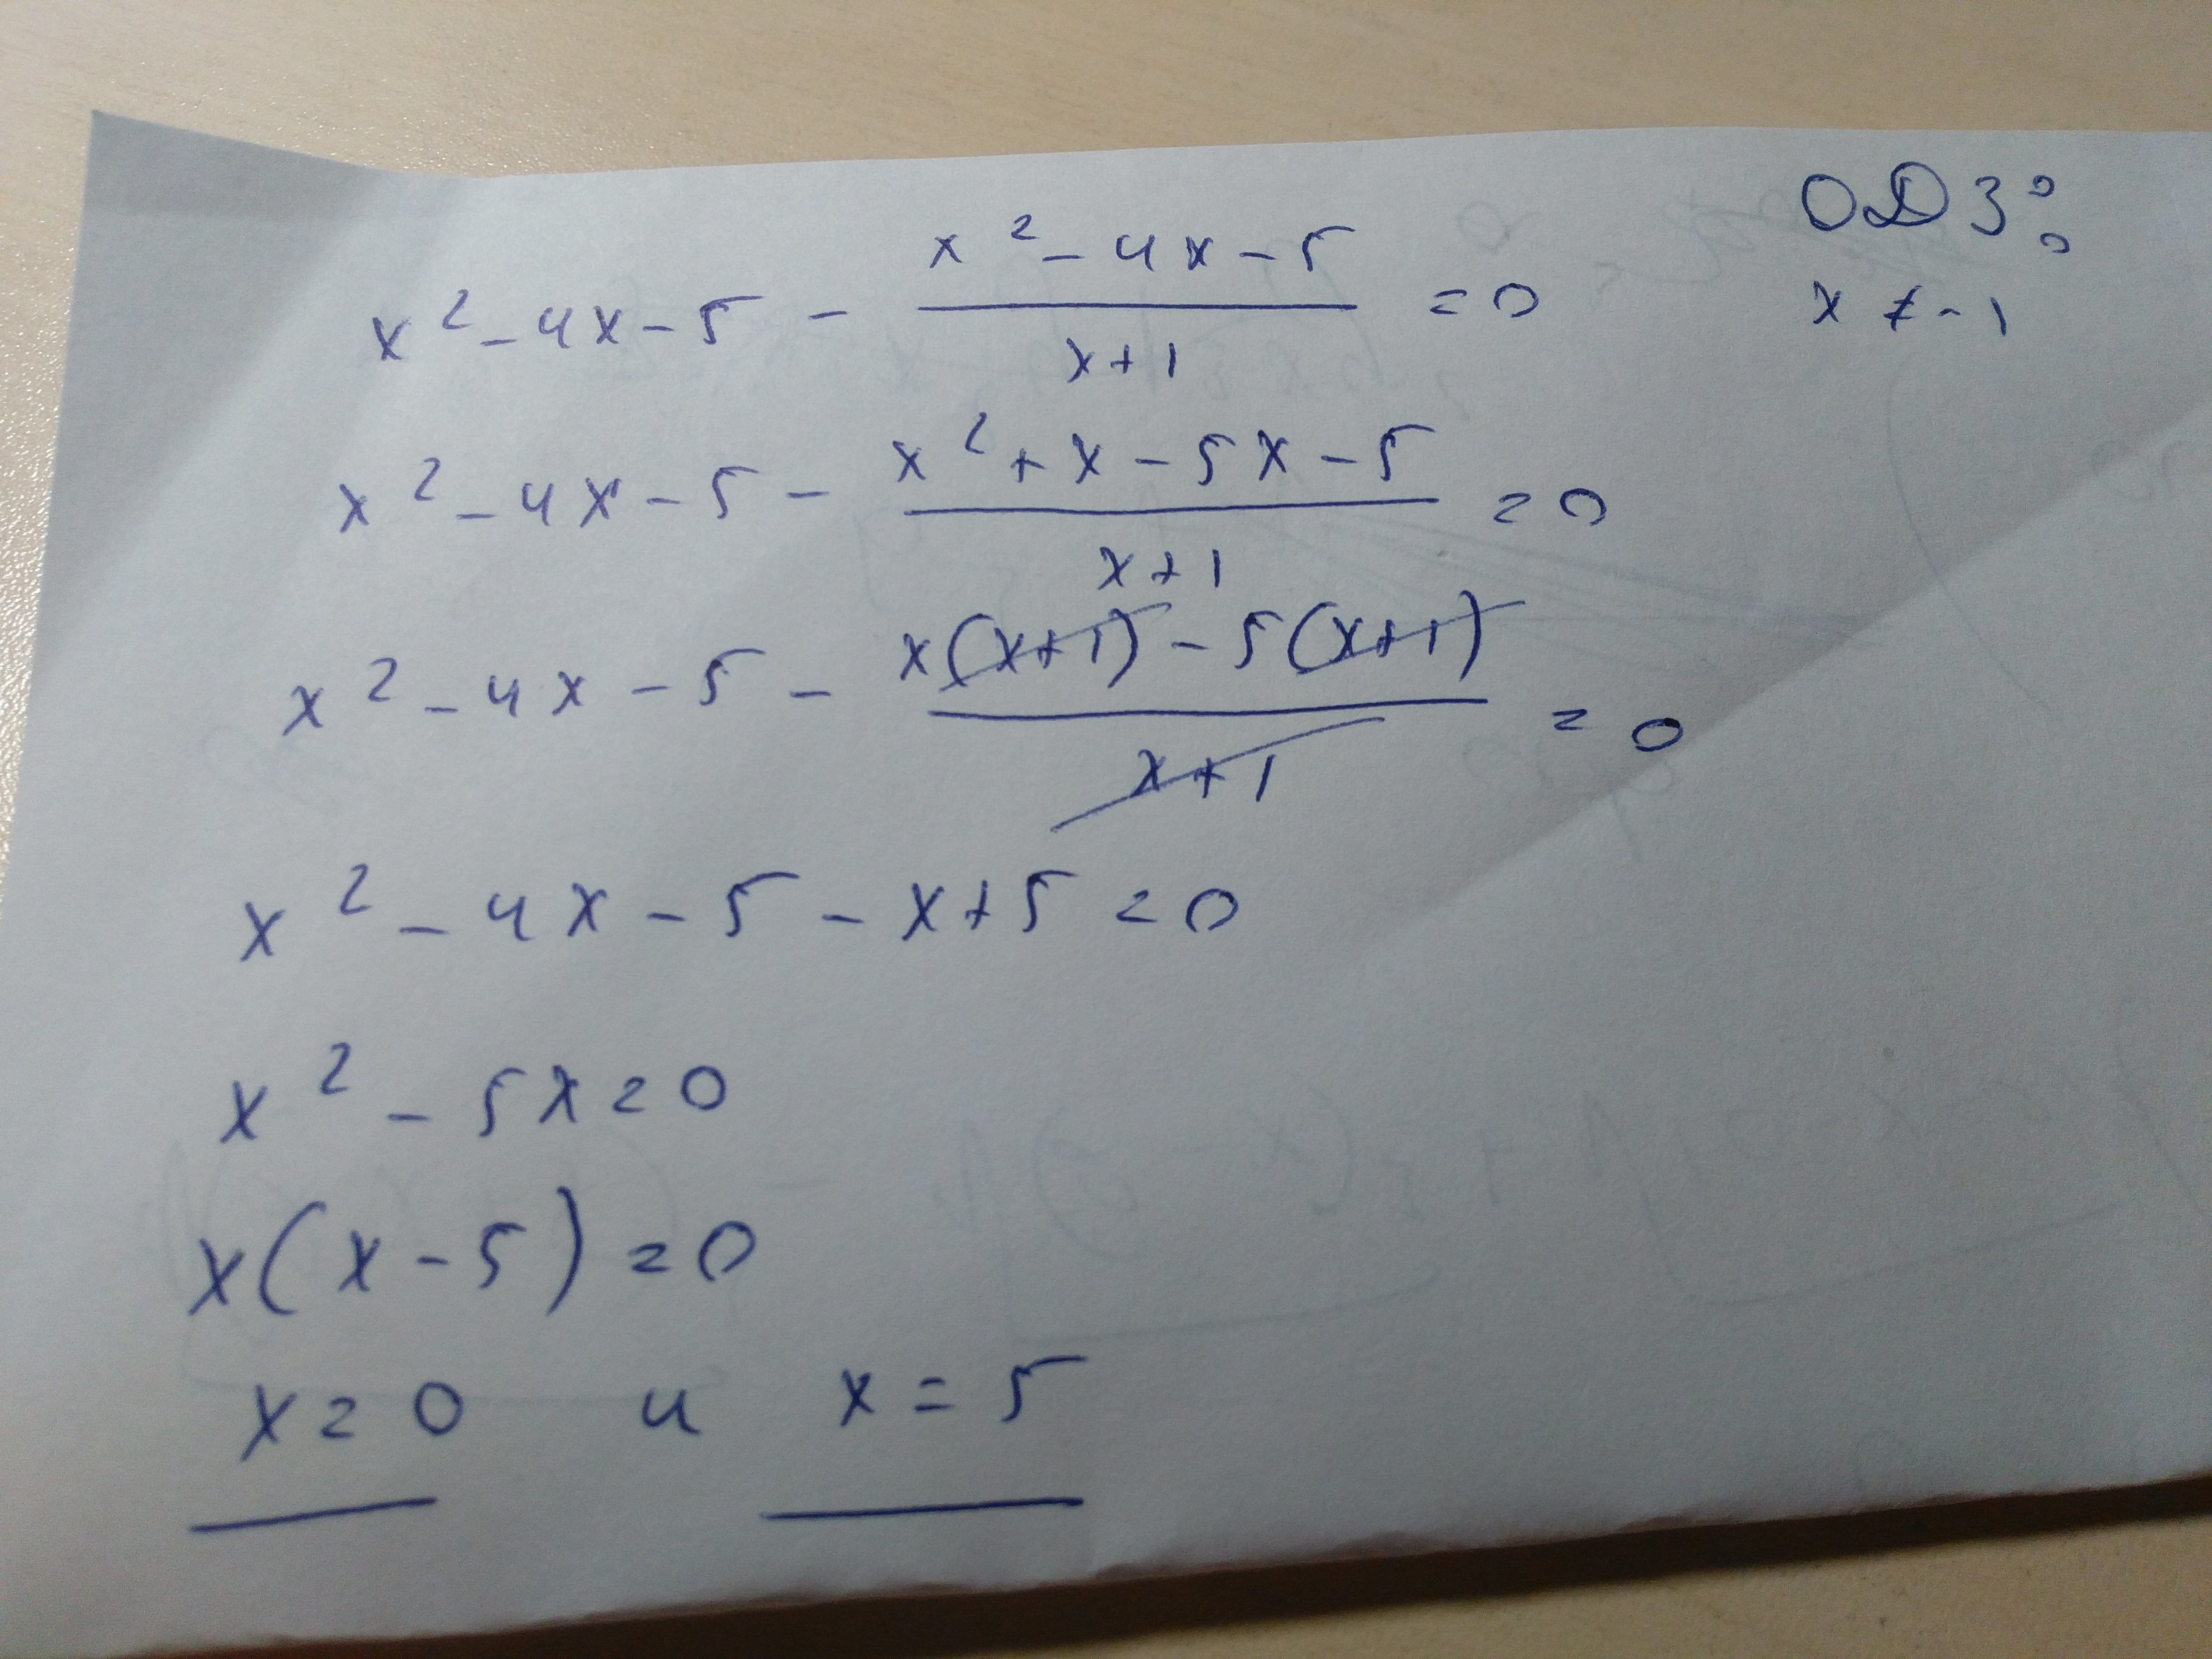 x² - 4x - 5 - (x² - 4x - 5)/(x + 1) = 0
ОДЗ:
x ≠ -1
x² - 4x - 5 - (x² + x - 5x - 5)/(x + 1) = 0
x² - 4x - 5 - (x(x+1) - 5(x+1))/(x + 1) = 0
x² - 4x - 5 - x + 5 = 0
x² - 5x = 0
x(x - 5) = 0
x = 0 и x = 5